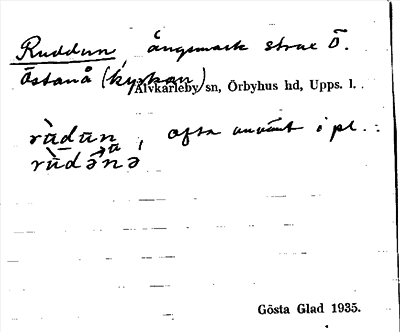 Ruddun, ängsmark strax Ö.
Östanå (kyrkan)
Älvkarleby sn, Örbyhus hd, Upps. l.
rùdun, ofta använt i pl.:
rùdənə
Gösta Glad 1935.